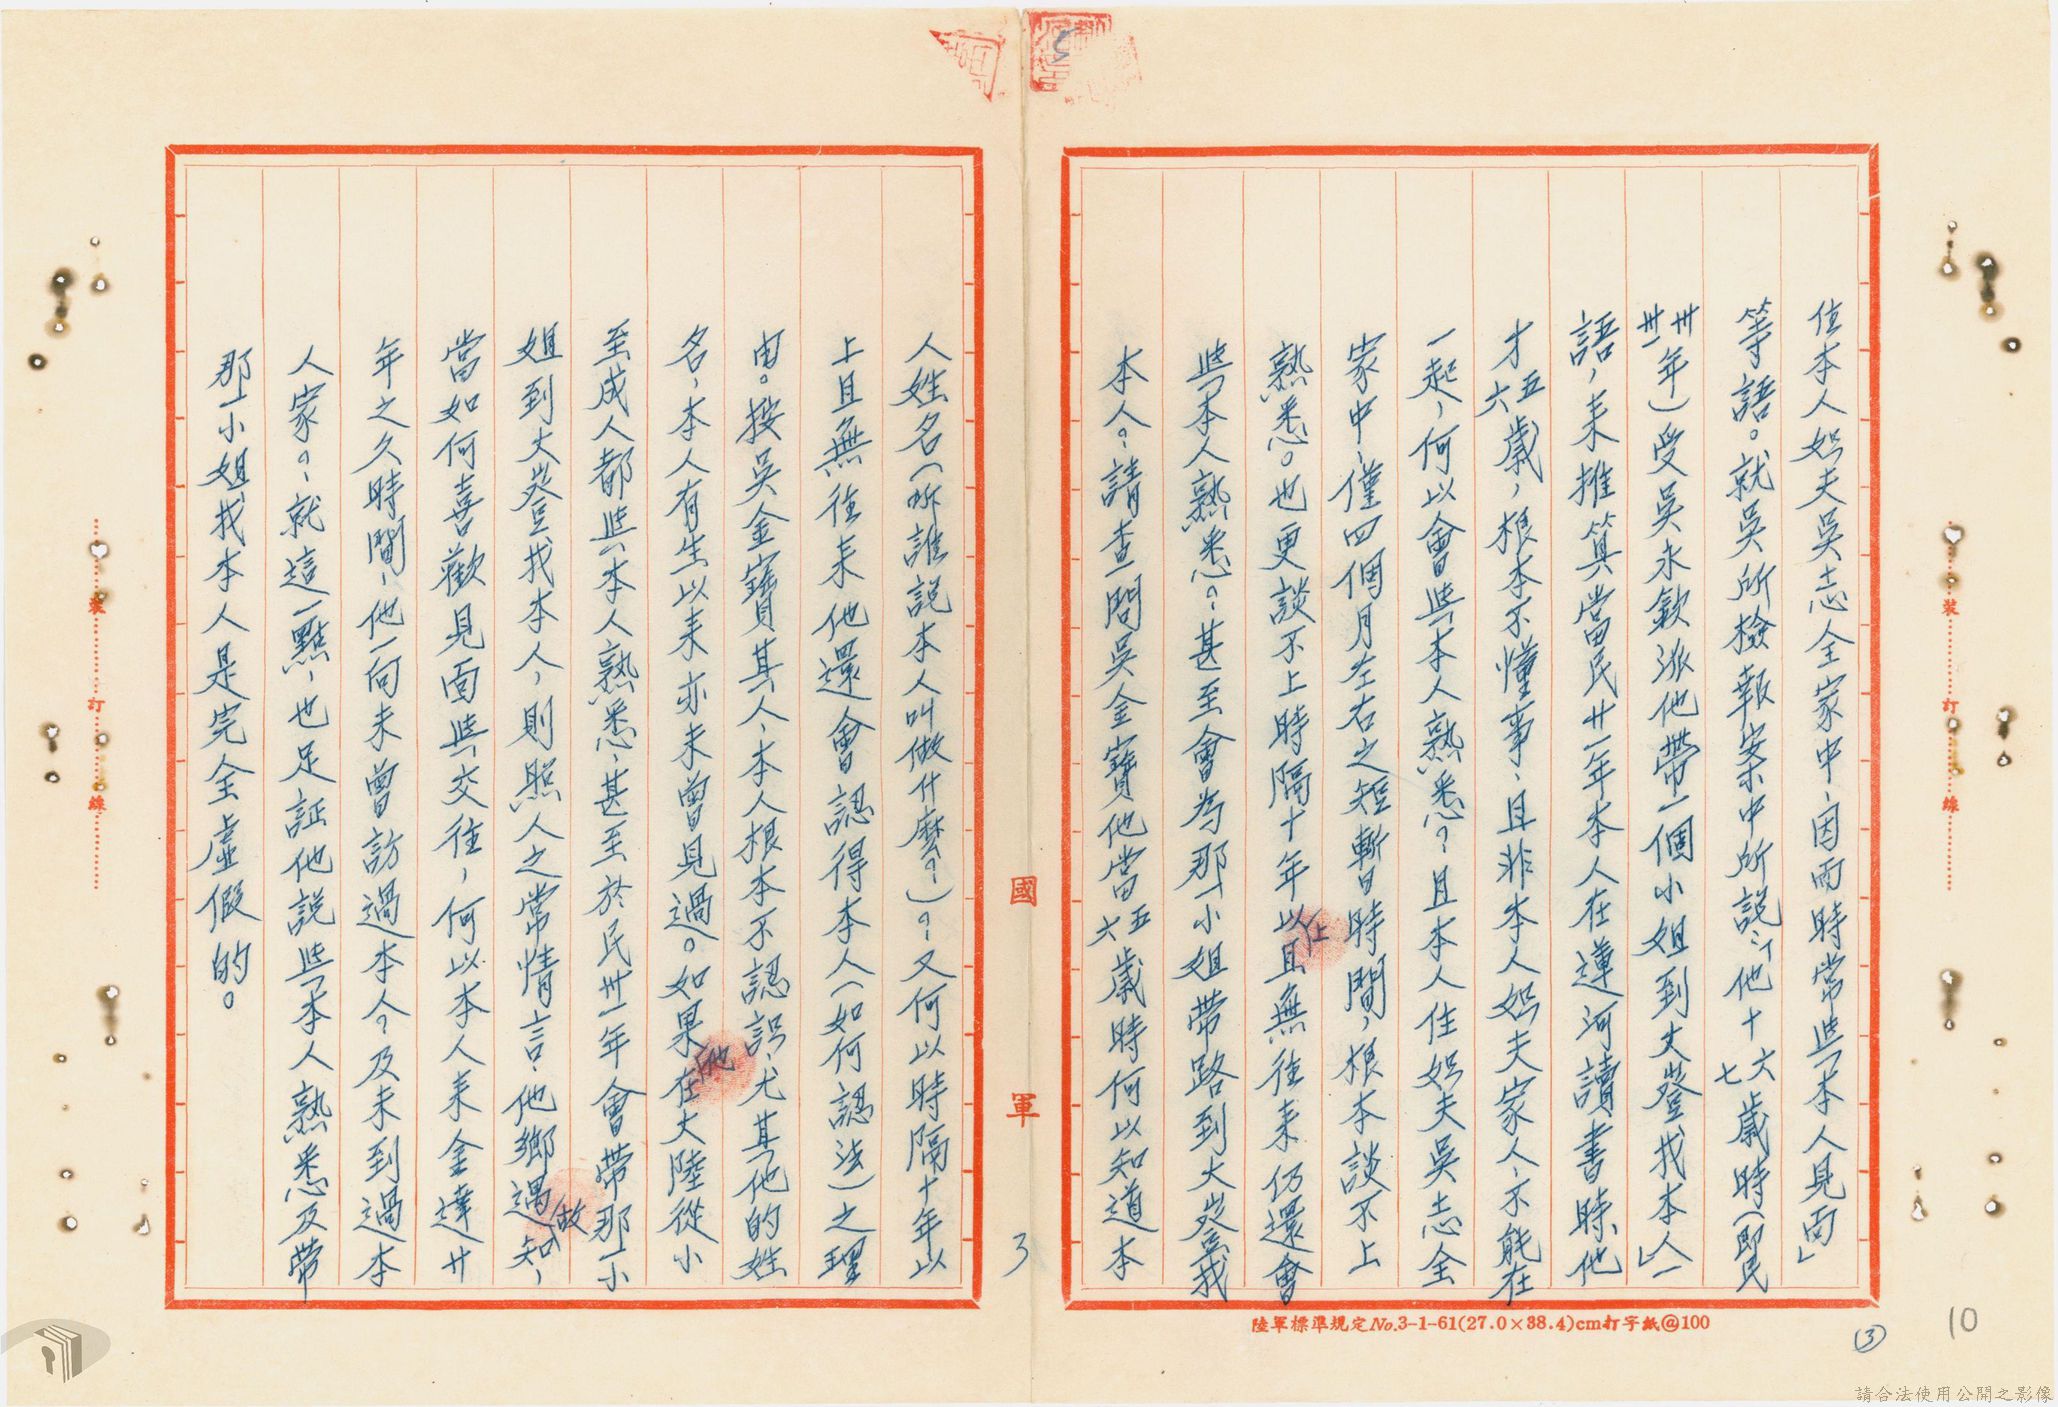 住本人姐夫吳志全家中，因而時常與本人見面」
等語。就吳所檢報案中所說：「他十六七歲時（即民
卅卅一年）受吳永欽派他帶一個小姐到大登找本人」一
語，來推算當民廿一年本人在蓮河讀書時他
才五六歲，根本不懂事、且非本人姐夫家人、不能在
一起，何以會與本人熟悉？且本人住姐夫吳志全
家中、僅四個月左右之短暫時間，根本談不上
熟悉。也更談不上時隔十年以上且無往來仍還會
與本人熟悉？甚至會為那一小姐帶路到大登找
本人？請查問吳金寶他當五六歲時何以知道本
人姓名（聽誰說本人叫做什麼？）？又何以時隔十年以
上且無往來他還會認得本人（如何認法）之理
由。按吳金寶其人、本人根本不認識、尤其他的姓
名，本人有生以來亦未曾見過。如果他在大陸從小
至成人都與本人熟悉、甚至於民卅一年會帶那一小
姐到大登找本人，則照人之常情言、他鄉遇故知，
當如何喜歡見面與交往，何以本人來金達廿
年之久時間、他一向未曾訪過本人？及未到過本
人家？就這一點，也足証他說與本人熟悉及帶
那一小姐找本人是完全虛假的。
國軍
3
陸軍標準規定No.3-1-61(27.0×38.4)cm打字紙@100
③
10
裝 訂 線
裝 訂 線
請合法使用公開之影像